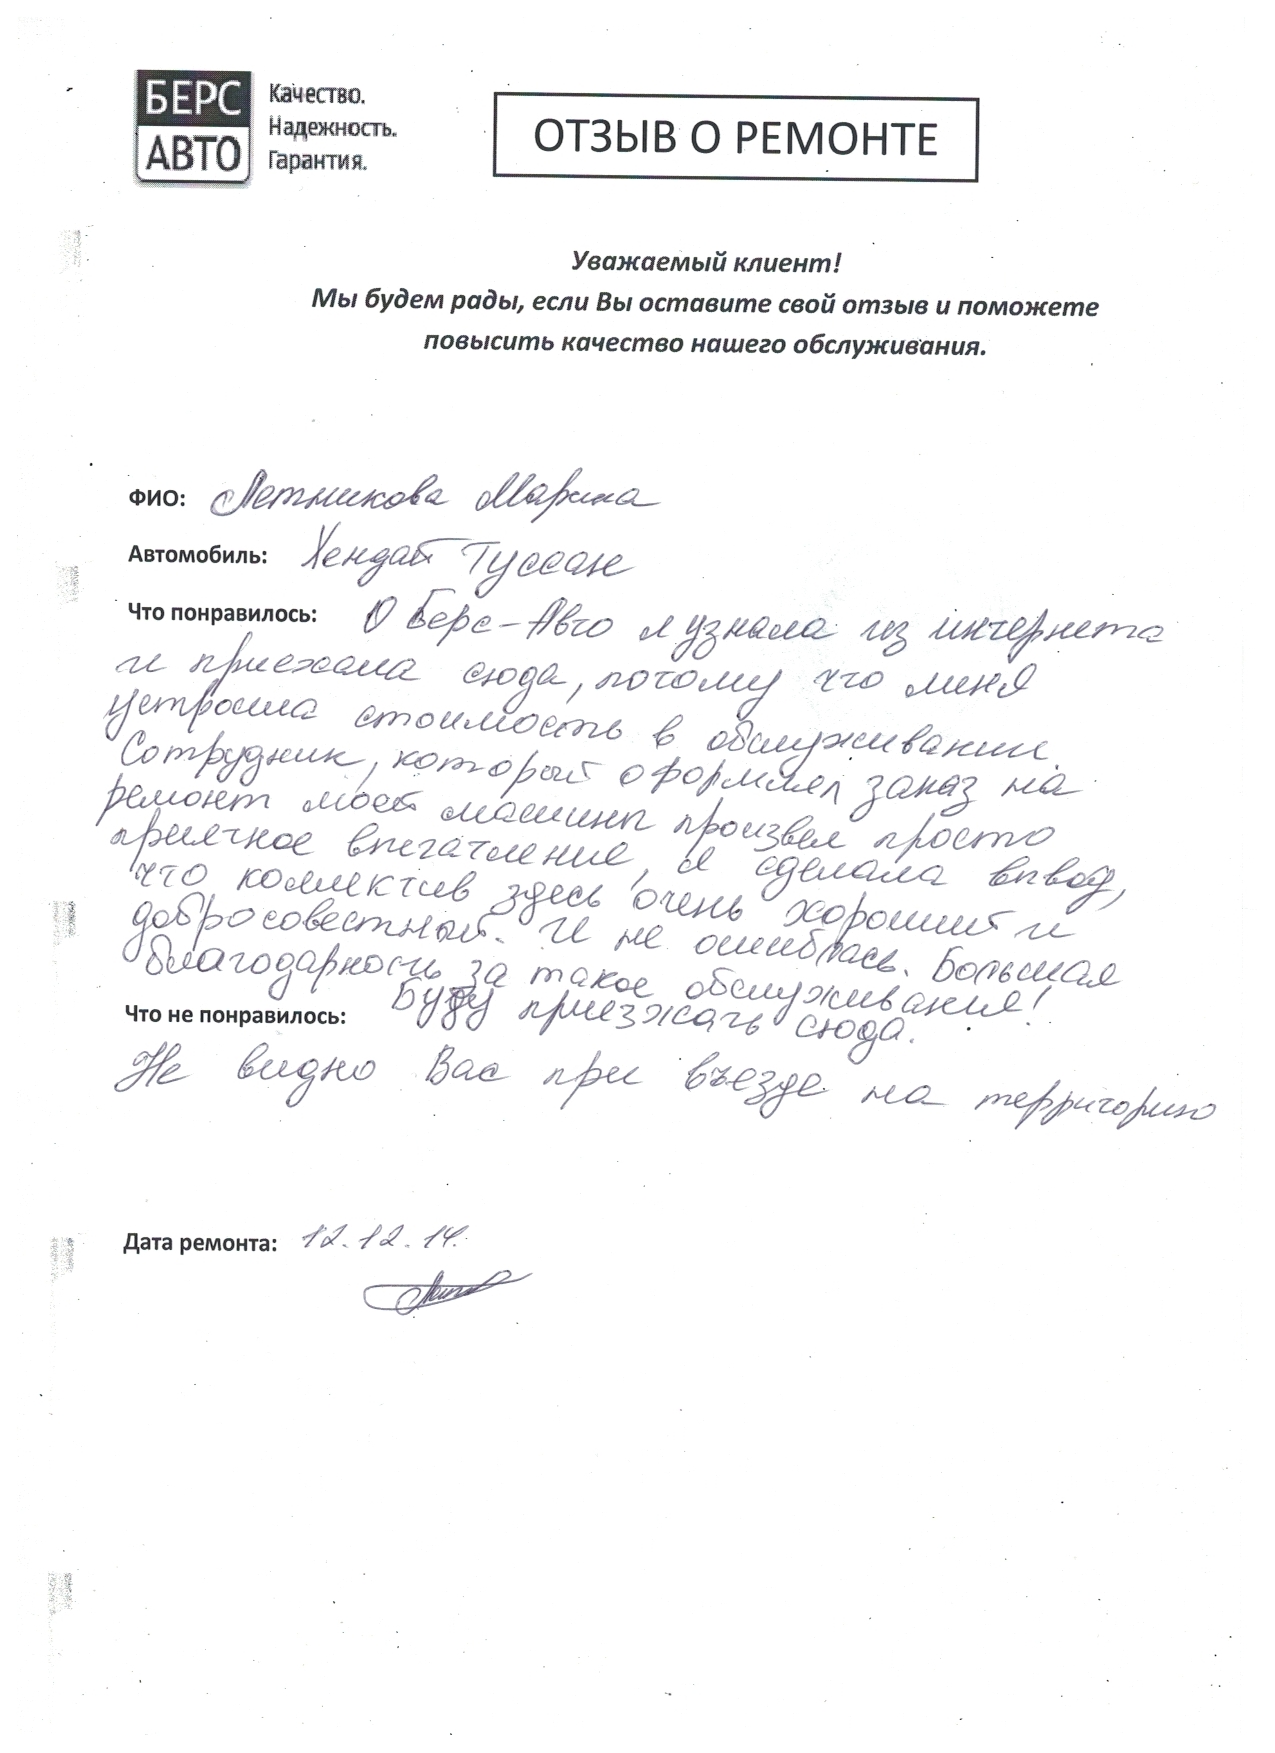 БЕРС
АВТО
Качество.
Надежность.
Гарантия.
ОТЗЫВ О РЕМОНТЕ
Уважаемый клиент!
Мы будем рады, если Вы оставите свой отзыв и поможете
повысить качество нашего обслуживания.
ФИО: Летникова Марина
Автомобиль: Хендай Туссан
Что понравилось: О Берс-Авто я узнала из интернета
и приехала сюда, потому что меня
устроила стоимость в обслуживании.
Сотрудник, который оформлял заказ на
ремонт моей машины произвел просто
приятное впечатление, я сделала вывод,
что коллектив здесь очень хороший и
добросовестный. И не ошиблась. Большая
благодарность за такое обслуживание!
Буду приезжать сюда.
Что не понравилось:
Не видно Вас при въезде на территорию
Дата ремонта: 12.12.14.